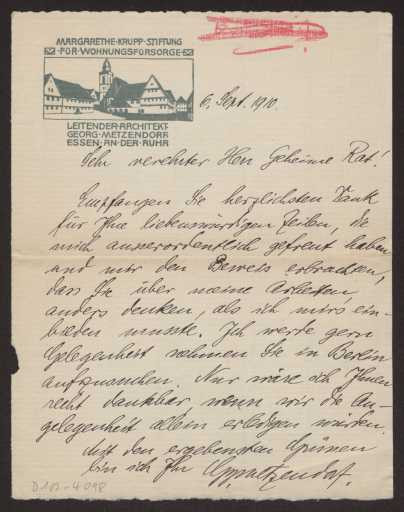 MARGARETHE-KRUPP-STIFTUNG
FÜR WOHNUNGSFÜRSORGE
LEITENDER ARCHITEKT
GEORG METZENDORF
ESSEN AN DER RUHR
6. Sept. 1910.
Sehr verehrter Herr Geheime Rat!
Empfangen Sie herzlichsten Dank
für Ihre liebenswürdigen Zeilen, die
mich ausserordentlich gefreut haben
und mir den Beweis erbrachten,
dass Sie über meine Arbeiten
anders denken, als ich mirs ein-
bilden musste. Ich werde gern
Gelegenheit nehmen Sie in Berlin
aufzusuchen. Nur wäre ich Ihnen
recht dankbar, wenn wir die An-
gelegenheit allein erledigen würden.
Mit den ergebensten Grüssen
bin ich Ihr Metzendorf.
D 103-4098